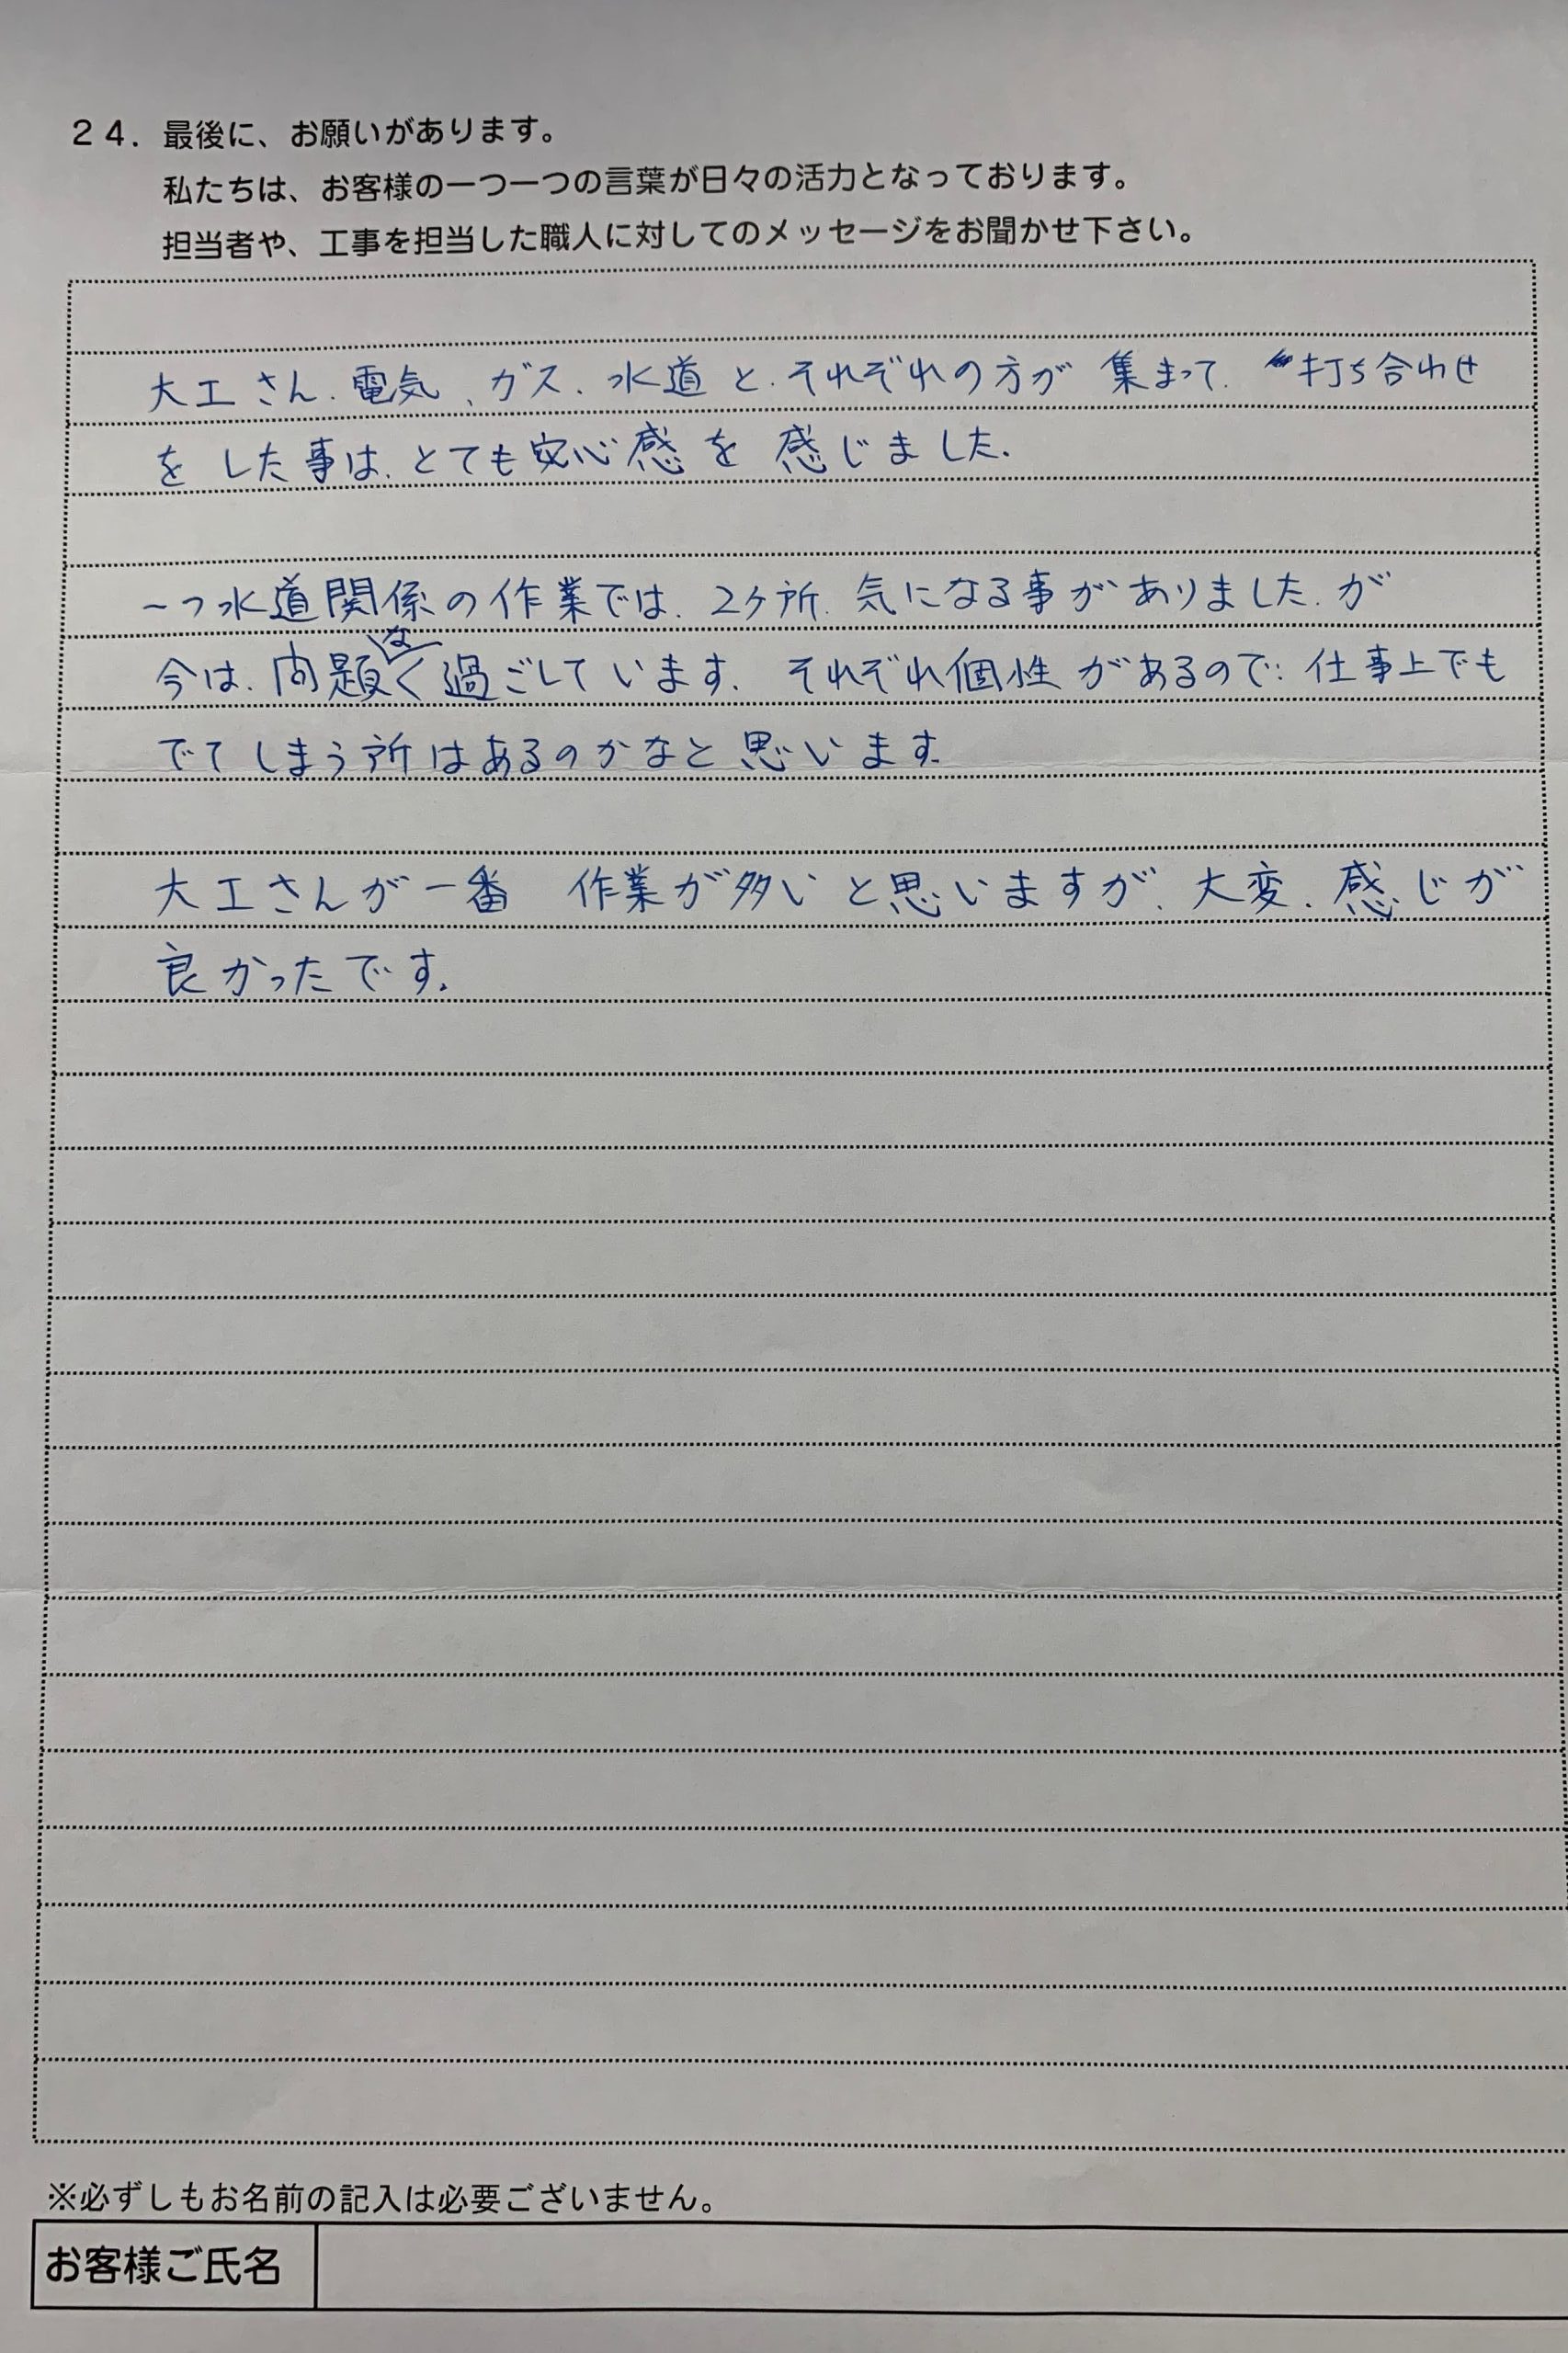 24. 最後に、お願いがあります。
私たちは、お客様の一つ一つの言葉が日々の活力となっております。
担当者や、工事を担当した職人に対してのメッセージをお聞かせ下さい。
大工さん、電気、ガス、水道と、それぞれの方が集まって、打ち合わせ
をした事は、とても安心感を感じました。
一つ水道関係の作業では、2ヶ所、気になる事がありました、が
今は、問題なく過ごしています。それぞれ個性があるので、仕事上でも
でてしまう所はあるのかなと思います。
大工さんが一番 作業が多いと思いますが、大変、感じが
良かったです。
※必ずしもお名前の記入は必要ございません。
お客様ご氏名